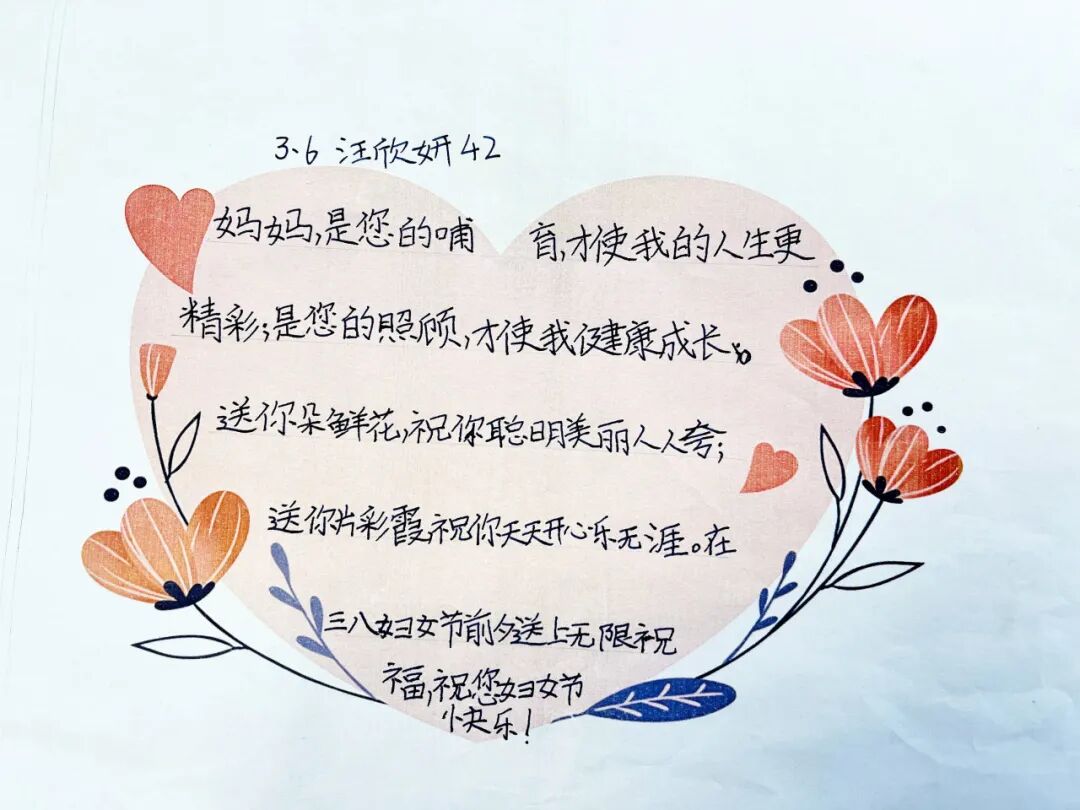 3.6 汪欣妍 42
妈妈,是您的哺育,才使我的人生更
精彩;是您的照顾,才使我健康成长。
送你朵鲜花,祝你聪明美丽人人夸;
送你片彩霞,祝你天天开心乐无涯。在
三八妇女节前夕送上无限祝
福,祝您妇女节
快乐!